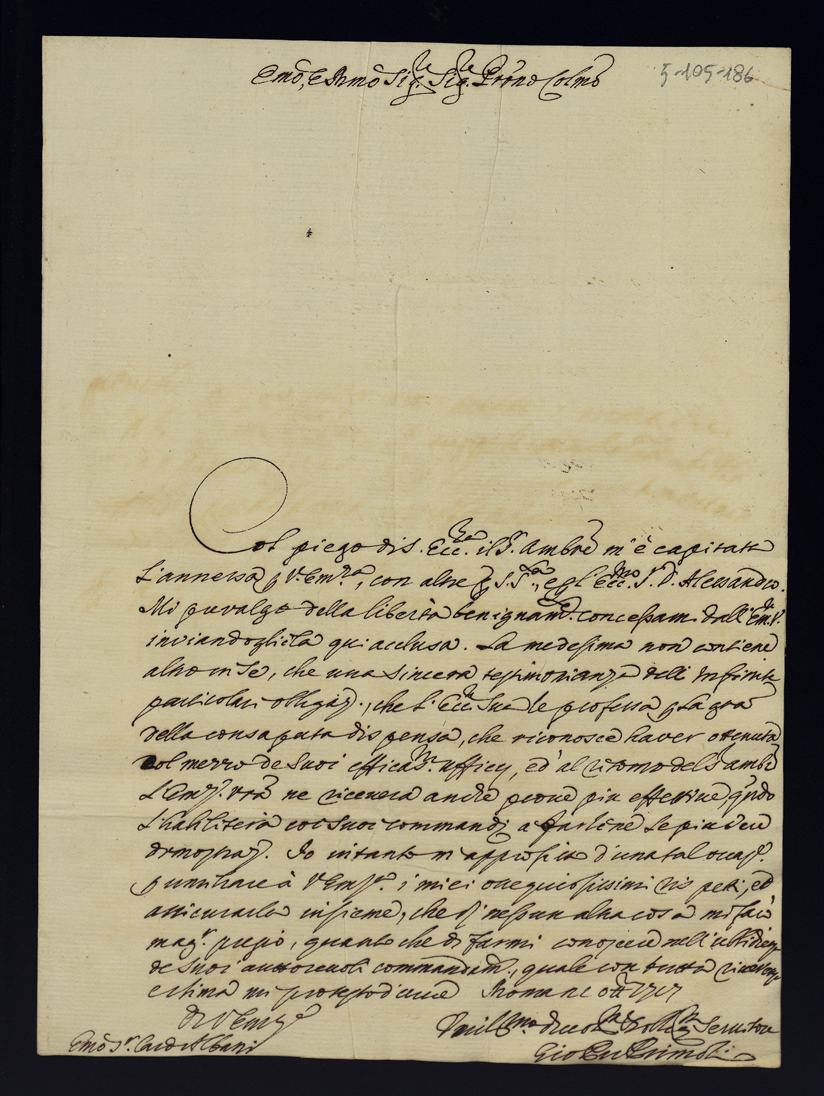 Emo, e Rmo Sig.re Sig.re Prōne Colmo
5-105-186
Col piego di S. Ecc.za il S.r Ambre m'è capitata
l'annessa p V. Em.za, con altre p S. S.tà, e gl' Ecc.mo S.r D. Alessandro.
Mi prevalgo della libertà benignam.te concessami dall' Em. V.
inviandogliela qui acclusa. La medesima non contiene
altro in se, che una sincera testimonianza dell' infinite
particolari obligaz., che l' Ecc.za Sua le professa p la gra
della consaputa dispensa, che riconosce haver ottenuta
col mezzo de suoi efficac.mi ufficij, ed al ritorno del S. Ambre
l' Em.za Vra ne riceverà anche prove più effettive, qūdo
l'habiliterà co' suoi commandi a farlene le più vere
dimostraz. Io intanto m'approfitto d'una tal occaz.e
p umiliare à V. Em.za i miei ossequiosissimi rispetti, ed
assicurarla insieme, che di nessun altra cosa mi facio
magg.r pregio, quanto che di farmi conoscere nell' ubbidienza
de suoi autorevoli commandam.ti, quale con tutta
e stima mi protesto d'essere Roma ott.e 1717
Di V. Em.za
Umill.mo Devot.mo Obblig.mo Servitore
Emo S.r Card. Albani
Gio